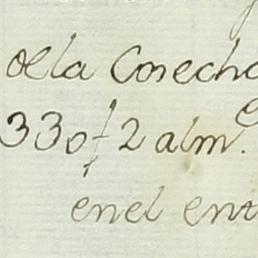 de la Cosecha
33 of 2 alm.
en el ent